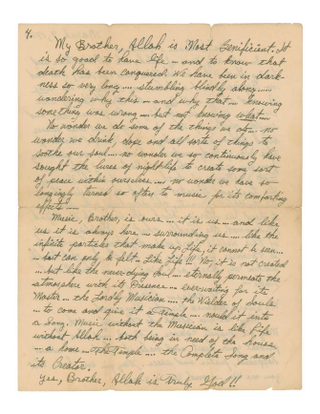 4.
My Brother, Allah is Most Benificient. It
is so good to have life... and to know that
death has been conquered. We have been in dark-
ness so very long.... stumbling blindly along.....
wondering why this... and why that.... knowing
something was wrong..... but not knowing what....
No wonder we do some of the things we do... no
wonder we drink, dope and all sorts of things to
soothe our soul.... no wonder we so continuously have
sought the lures of nightlife to create some sort
of peace within ourselves..... no wonder we have so
longingly turned so often to music for its comforting
effects.....
Music, Brother, is ours... it is us... and like
us it is always here... surrounding us.... like the
infinite particles that make up Life, it cannot be seen...
but can only be felt.. Like Life!!! No, it is not created
... but like the never-dying Soul... eternally permeates the
atmosphere with its Presence... ever-waiting for its
Master... the Lordly Musician.... the Wielder of Souls
... to come and give it a Temple... mould it into
a Song. Music without the Musician is like Life
without Allah... both being in need of the house
... a home... The Temple.... the Complete Song and
its Creator.
Yes, Brother, Allah is Truly God!!